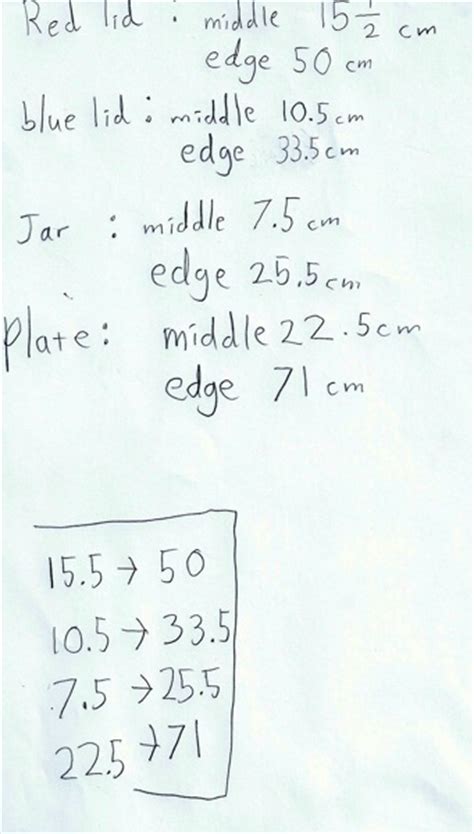 Red lid : middle 15 1/2 cm
edge 50 cm
blue lid : middle 10.5 cm
edge 33.5 cm
Jar : middle 7.5 cm
edge 25.5 cm
Plate : middle 22.5 cm
edge 71 cm
15.5 → 50
10.5 → 33.5
7.5 → 25.5
22.5 → 71